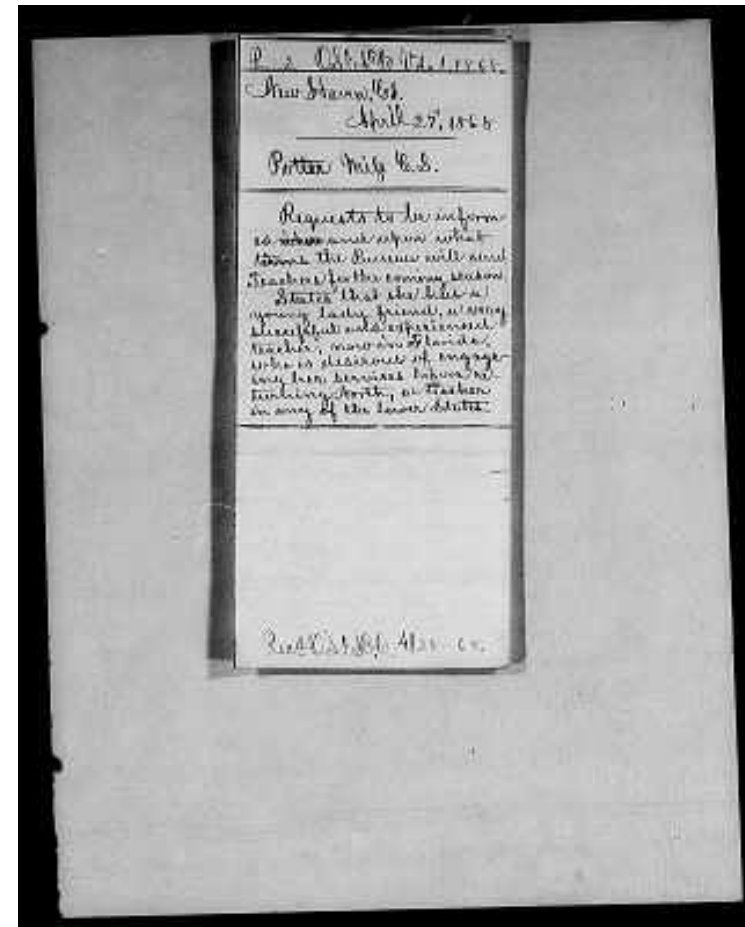 New Haven, Ct.
April 27, 1868
Potter Miss C. S.
Requests to be inform-
ed where and upon what
terms the Bureau will send
Teachers for the coming season.
States that she has a
young lady friend, a very
successful and experienced
teacher, now in Florida,
who is desirous of engag-
ing her services upon re-
turning North, as Teacher
in any of the lower States.